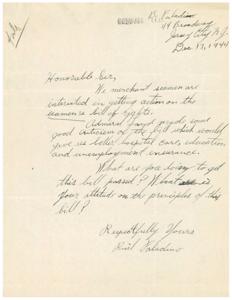 R. Paladino
44 Broadway
Jersey City N.J.
Dec 17, 1944
Honorable Sir,
We merchant seamen are
interested in getting action on the
seamen's bill of rights.
Admiral Land made some
good criticism of the bill which would
give us better hospital care, education
and unemployment insurance.
What are you doing to get
this bill passed? What is
your attitude on the principles of this
bill?
Respectfully Yours
Paladino